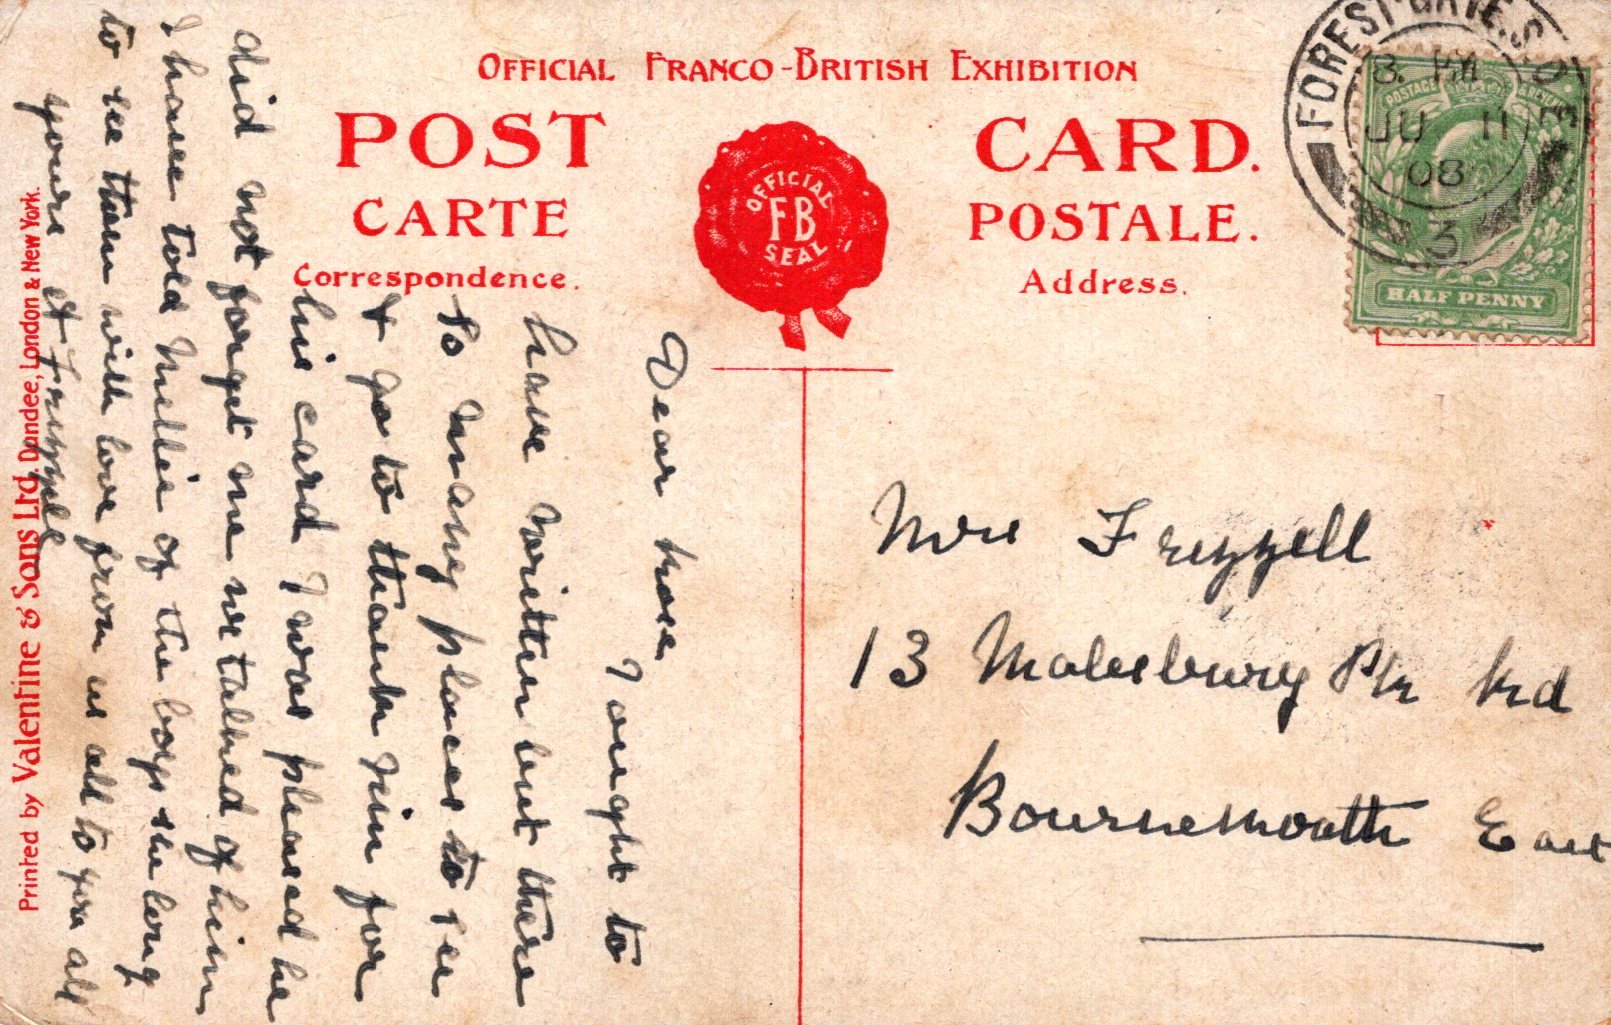 OFFICIAL FRANCO-BRITISH EXHIBITION
POST CARD.
CARTE POSTALE.
Correspondence. Address.
OFFICIAL
FB
SEAL
FOREST GATE. S.O.
E
8. PM
JU 11
08
3
POSTAGE
HALF PENNY
Dear
I ought to
have written but there
so many places to see
& go to thank him for
his card I was pleased he
did not forget me we talked of him
I have told Nellie of the boys she long
to see them with love from us all to you all
yours
Mrs Frizzell
13 Malesbury Pk Rd
Bournemouth East
Printed by Valentine & Sons Ltd. Dundee, London & New York.